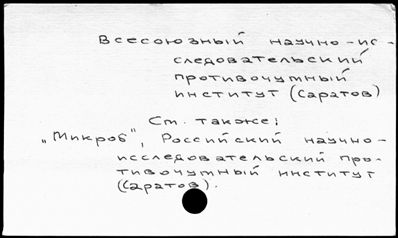 Всесоюзный научно-ис-
следовательский
противочумный
институт (Саратов)
См. также:
„Микроб", Российский научно-
исследовательский про-
тивочумный институт
(Саратов).